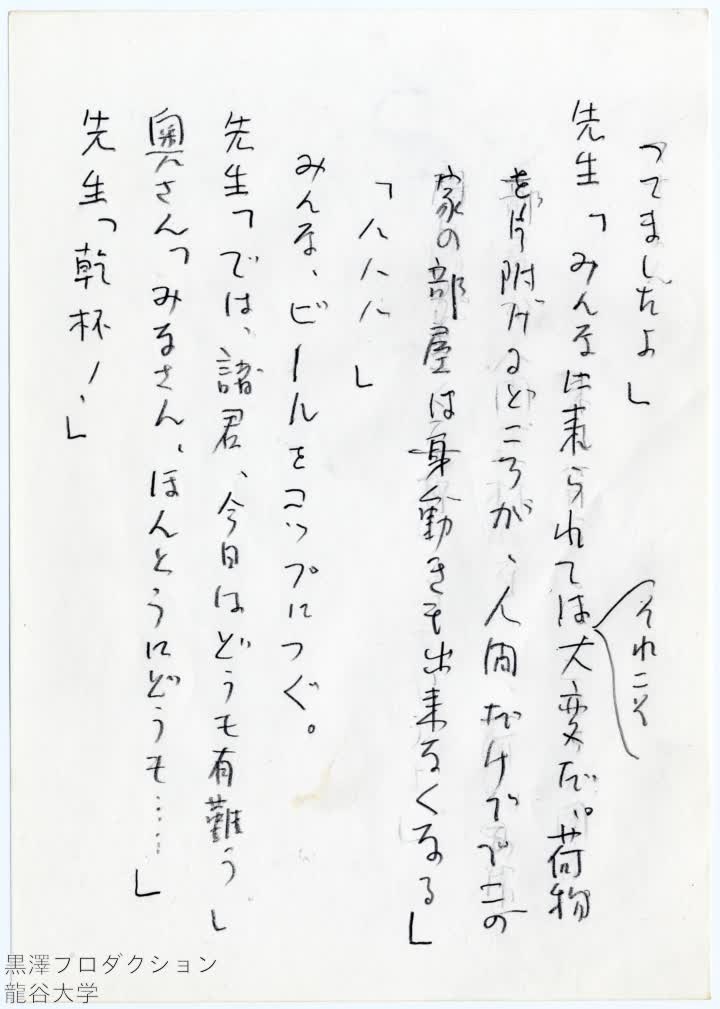 ってましたよ」
先生「みんなに来られてはそれこそ大変だ。荷物
を片附けるどころが、人間だけでこの
家の部屋は身動きも出来なくなる」
「ハハハ」
みんな、ビールをコップにつぐ。
先生「では、諸君、今日はどうも有難う」
奥さん「みなさん、ほんとうにどうも……」
先生「乾杯!」
黒澤プロダクション
龍谷大学